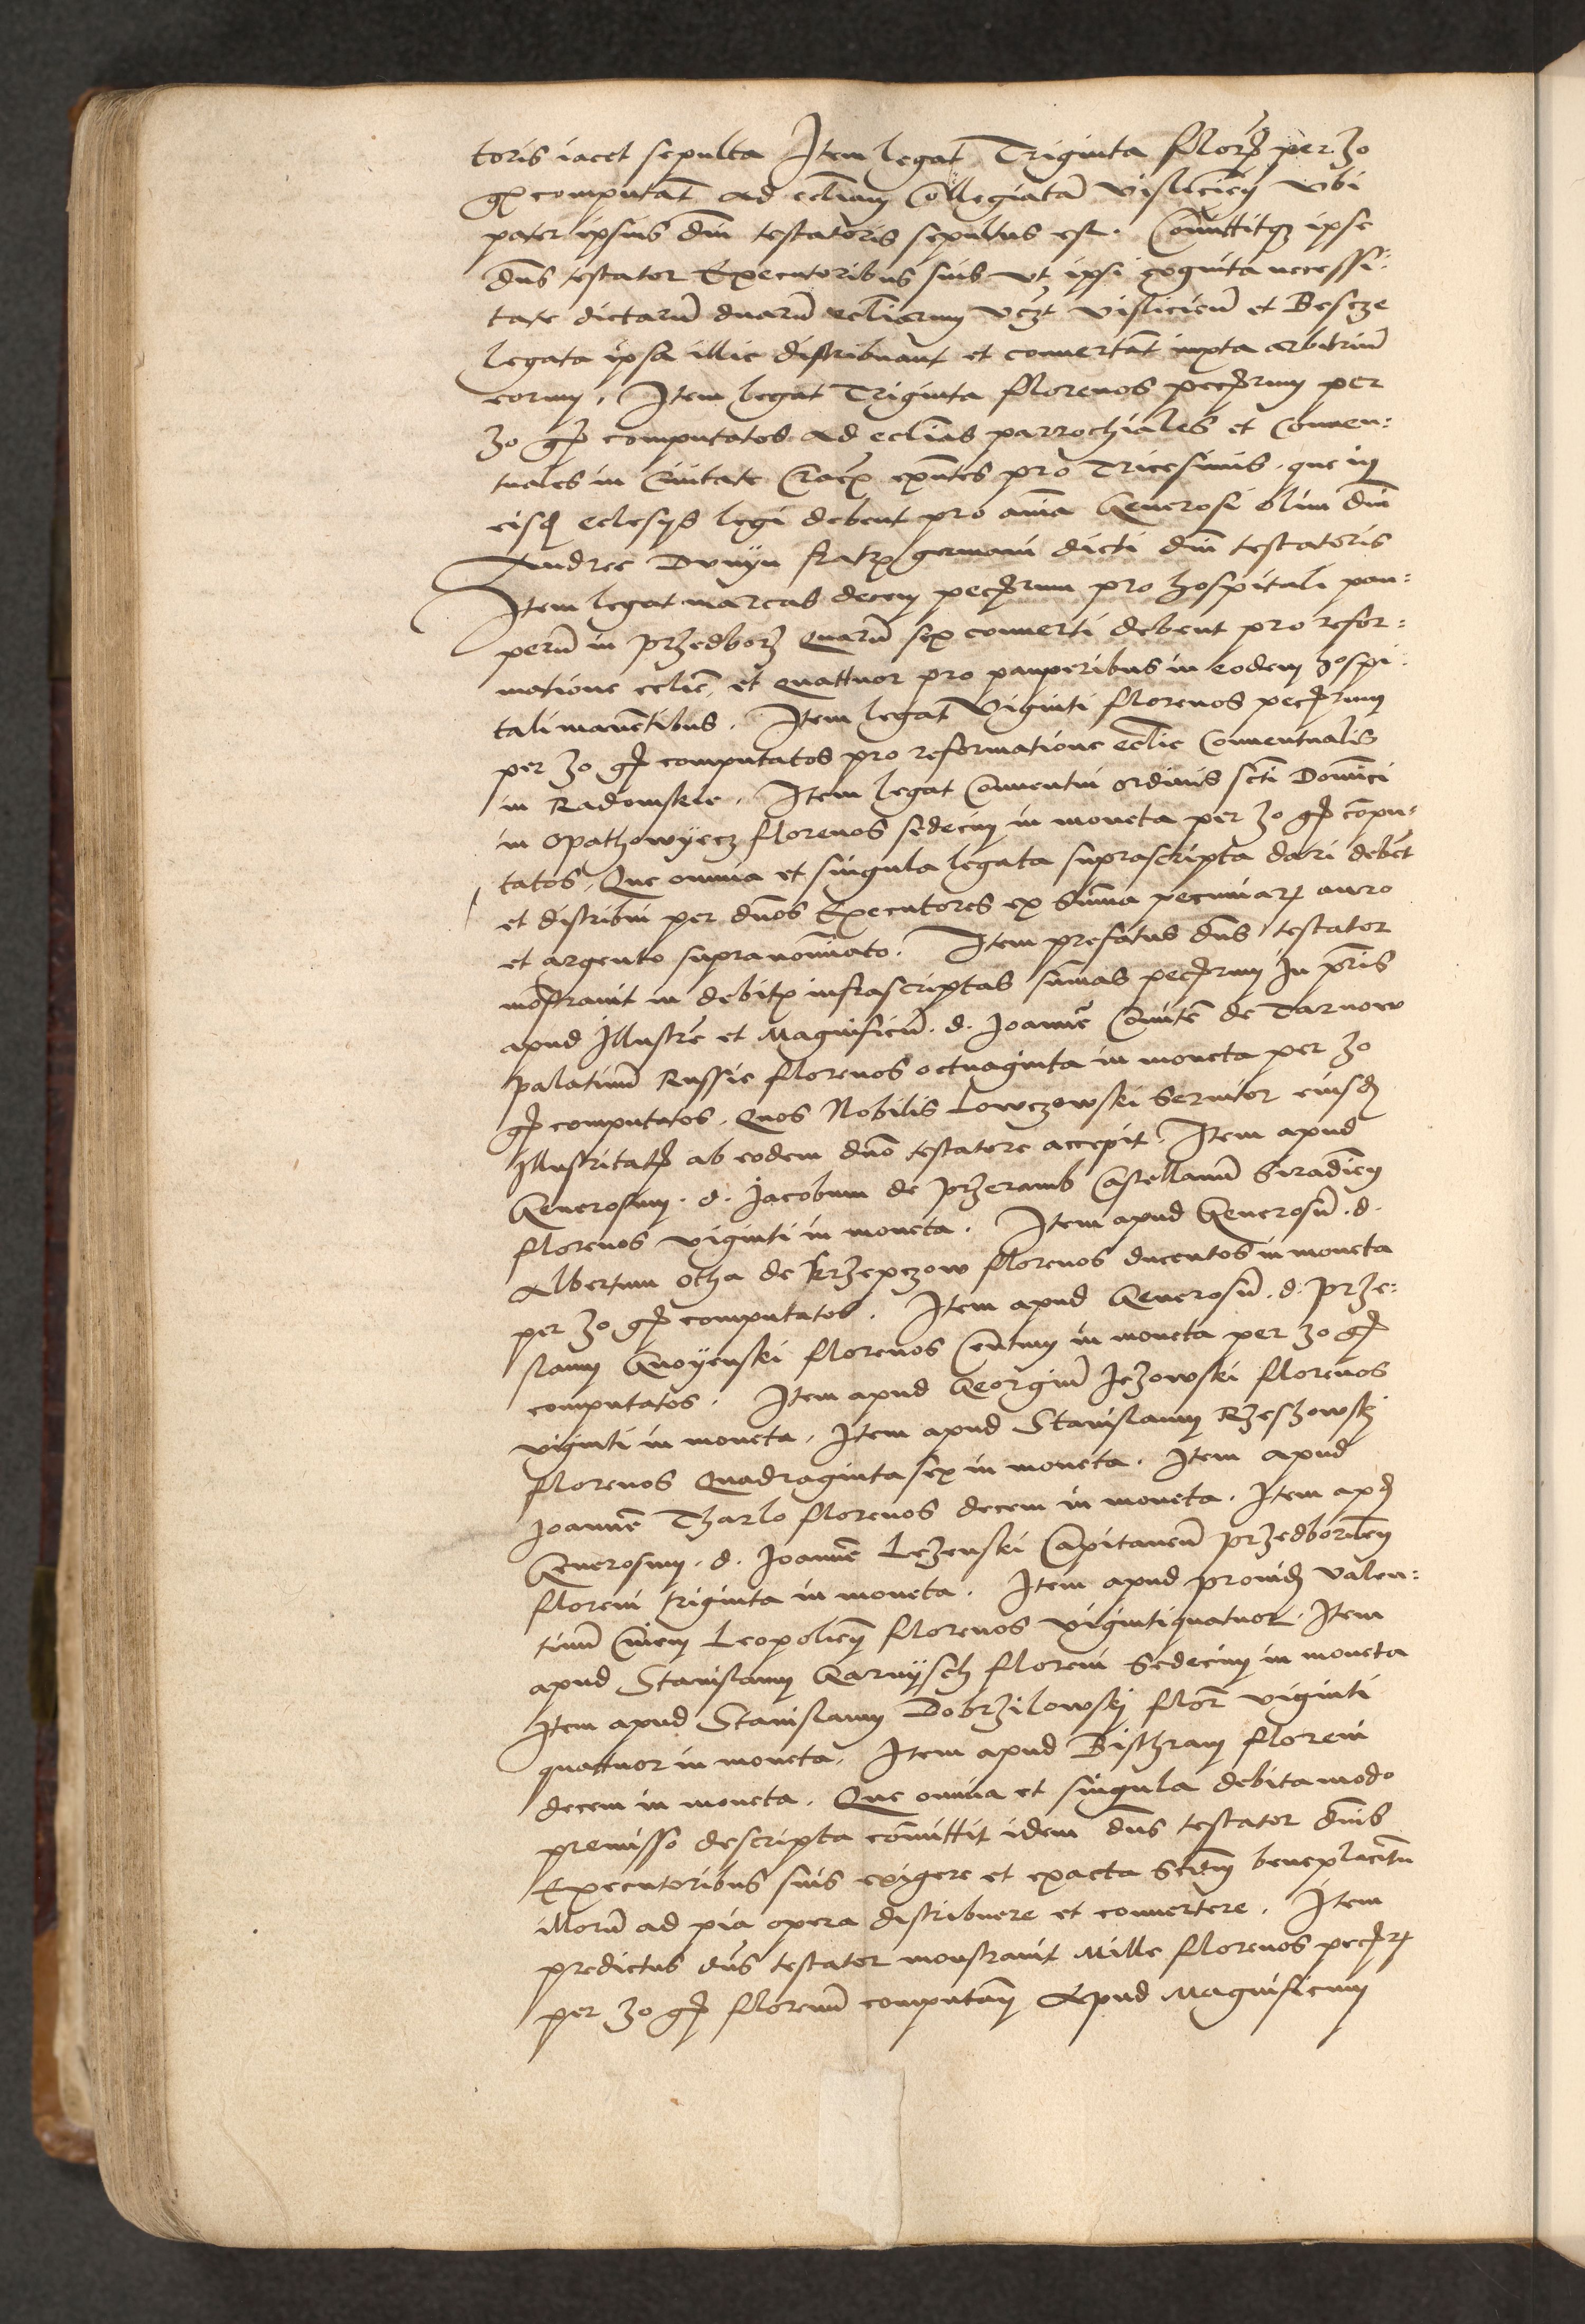 toris iacet sepulta Item legat Triginta flor̃ per 30
gr̃ computat̃ ad ecl̃iam Collegiatã visliciẽn̄ vbi
pater ipsius dn̄i testatoris sepultus est. Com̃ittitqʒ ipse
dn̄s testator Executoribus suis vt ipsi cognita necessi:
tate dictarũ duarũ ecl̃iarum vcʒt visliciẽn̄ et Bescze
legata ipsa illic distribuant et conuertãt iuxta arbitriũ
eorum. Item legat Triginta florenos pecc̃iarum per
30 gr̃ computatos ad ecl̃ias parrochiales et Conuen:
tuales in Ciuitate Cracõ exñtes pro Tricesimis. que in
eisd̃ eclesijs legi debent pro aĩa Generosi olim dn̄i
Andree Druyn fratr̃ germani dicti dn̄i testatoris
Item legat marcas decem pecc̃iarum pro hospitali pau:
perũ in Przedborz quarũ sex conuerti debent pro refor:
matione ecl̃ie, et quattuor pro pauperibus in eodem hospi:
tali manẽtibus. Item legat Viginti florenos pecc̃iarum
per 30 gr̃ computatos pro reformatione ecl̃ie Conuentualis
in Radomskie. Item legat Conuentui ordinis scti Dominici
in Opathowyecz florenos sedecim in moneta per 30 gr̃ compu:
tatos, Que omnia et singula legata suprascripta dari debẽt
et distribui per dn̄os Executores ex sum̃a pecuniarʒ auro
et argento supranom̃iato. Item prefatus dn̄s testator
mõstrauit in debitis infrascriptas sum̃as pecc̃iarum In prĩs
apud Illustrẽ et Magnificũ. d. Joannẽ Comitẽ de Tarnow
Palatinũ Russie florenos octuaginta in moneta per 30
gr̃ computatos. Quos Nobilis Lowczowski seruitor eiusd̃
Illustritatis ab eodem dn̄o testatore accepit. Item apud
Generosum. d. Jacobum de Przeramb Castellanũ Siradiẽn̄
florenos viginti in moneta. Item apud Generosũ. d.
Albertum Otha de Krzepczow florenos ducentos in moneta
per 30 gr̃ computatos. Item apud Generosũ. d. Prze:
slaum Gnoyenski florenos Centum in moneta per 30 gr̃
computatos. Item apud Georgiũ Jezowski florenos
viginti in moneta. Item apud Stanislaum Rzeszowskj
florenos Quadraginta sex in moneta. Item apud
Joannẽ Tharlo florenos decem in moneta. Item apd̃
Generosum. d. Joannẽ Lezenski Capitaneũ Przedboriẽn̄
floreni triginta in moneta. Item apud prouid̃ valen:
tinũ Ciuem Leopoliẽn̄ florenos vigintiquatuor. Item
apud Stanislaum Garnysch floreni Sedecim in moneta
Item apud Stanislaum Dobrzilowskj flor̃ viginti
quattuor in moneta. Item apud Bistram floreni
decem in moneta. Que omnia et singula debita modo
premisso descripta com̃ittit idem dn̄s testator dn̄is
Executoribus suis exigere et exacta Scd̃m beneplacitũ
illorũ ad pia opera distribuere et conuertere. Item
predictus dn̄s testator monstrauit Mille florenos pecc̃iarʒ
per 30 gr̃ florenũ computañ Apud Magnificum